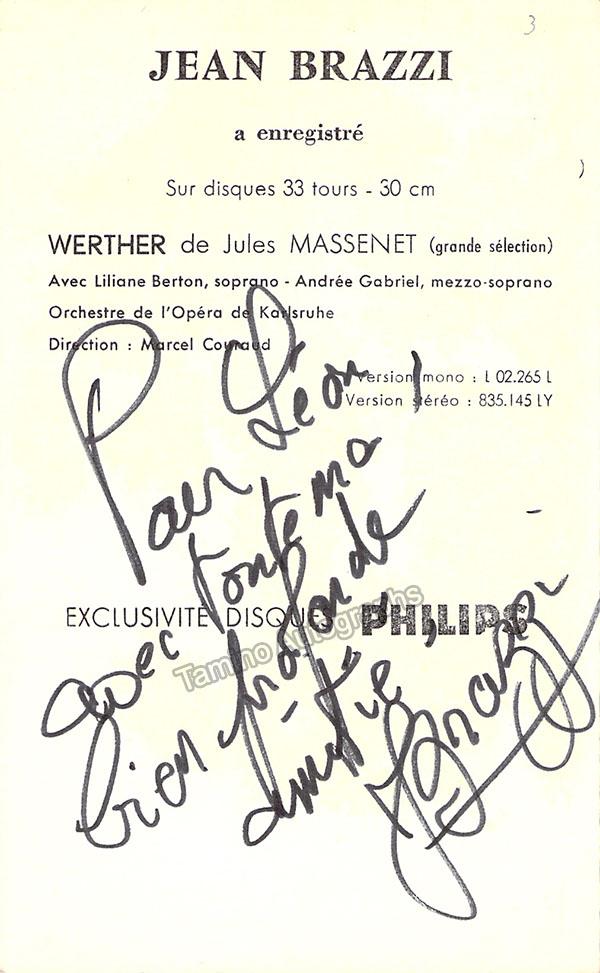 3
JEAN BRAZZI
a enregistré
Sur disques 33 tours - 30 cm
WERTHER de Jules MASSENET (grande sélection)
Avec Liliane Berton, soprano - Andrée Gabriel, mezzo-soprano
Orchestre de l'Opéra de Karlsruhe
Direction : Marcel Couraud
Version mono : L 02.265 L
Version stéréo : 835.145 LY
EXCLUSIVITÉ DISQUES PHILIPS
Pour Léon,
avec toute ma
bien profonde
amitié,
J Brazzi
Tamino Autographs